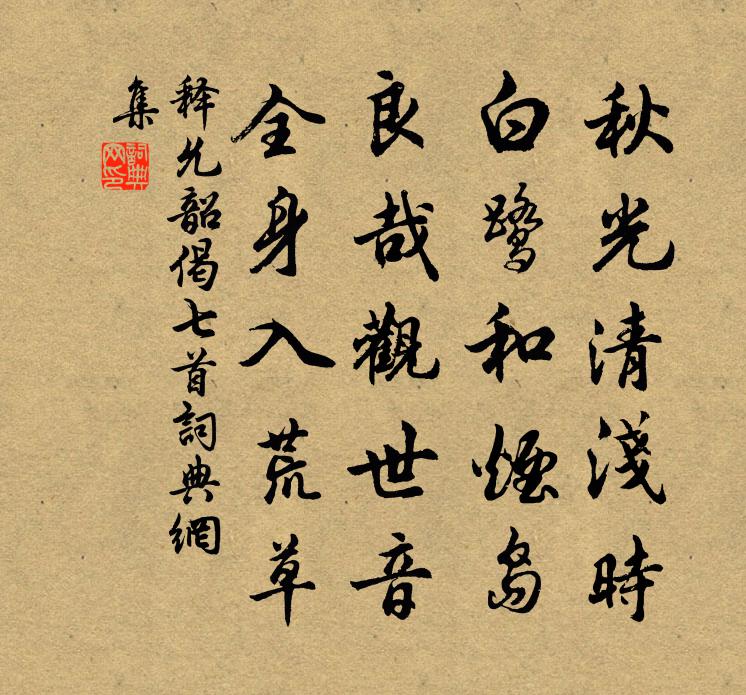 秋光清淺時
白鷺和煙島
良哉觀世音
全身入荒草
释允韶偈七首詞典網
集
詞典网印